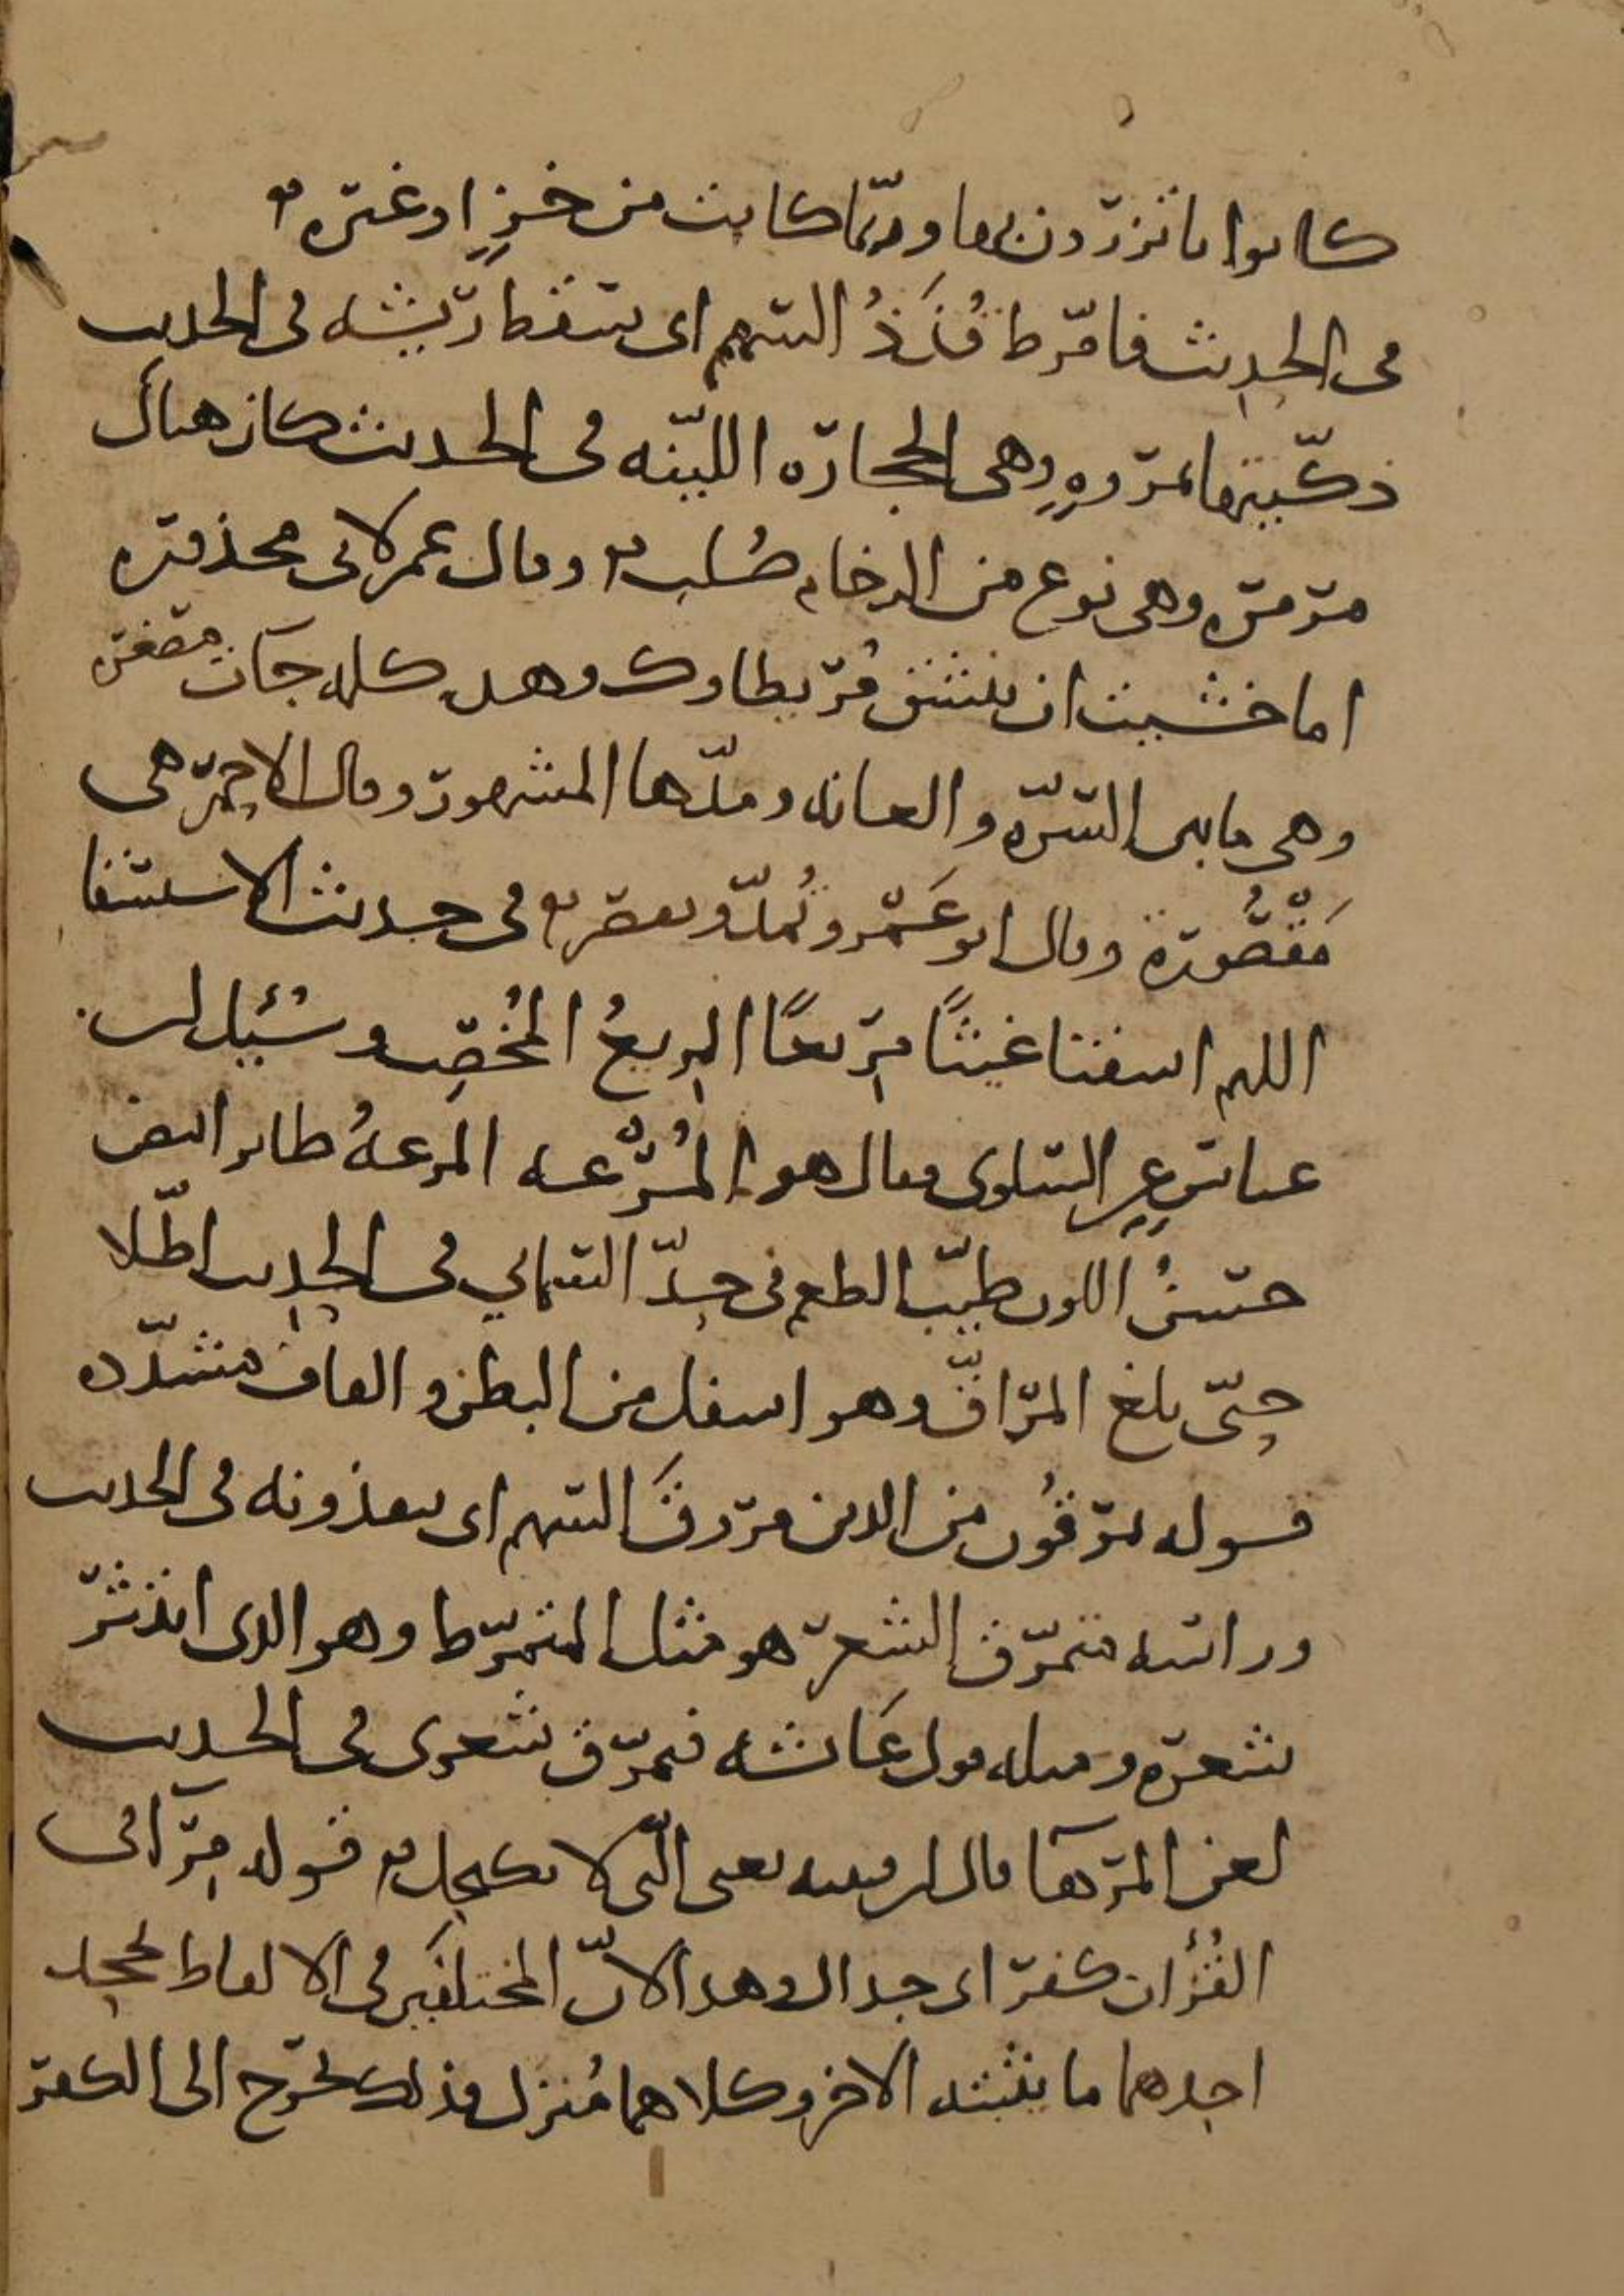 كانوا ياتزرون بها وربما كانت من خز او غيره
في الحديث فامرط قذذ السهم اي سقط ريشه في الحديث
ذكيتها بمروه وهي الحجاره اللينه في الحديث كان هناك
مرمره وهي نوع من الرخام صلب وقال عمر لابي محذوره
اما خشيت ان ينشق مريطاوك وهذه كلمه جات مصغره
وهي ما بين السره والعانه ومدها المشهور وقال الاحمر هي
مقصورة وقال ابو عمرو تمد وتقصر في حديث الاستسقا
اللهم اسقنا غيثا مريعا المريع المخصب وسئل ابن
عباس عن السلوى فقال هو المرعه المرعة طاير ابيض
حسن اللون طيب الطعم في حد السماني في الحديث اطلا
حتى بلغ المراق وهو اسفل من البطن والقاف مشدده
قوله يمرقون من الدين مروق السهم اي ينفذونه في الحديث
وراسه متمرق الشعر هو مثل المتمرط وهو الذي انتثر
شعره ومثله قول عائشه فتمرق شعري في الحديث
لعن المرها قال ابن قتيبه يعني التي لا تكتحل قوله مرا في
القرآن كفر اي جدال وهذا لان المختلفين في الالفاظ يجحد
احدهما ما يثبته الاخر وكلاهما منزل فذلك يخرج الى الكفر